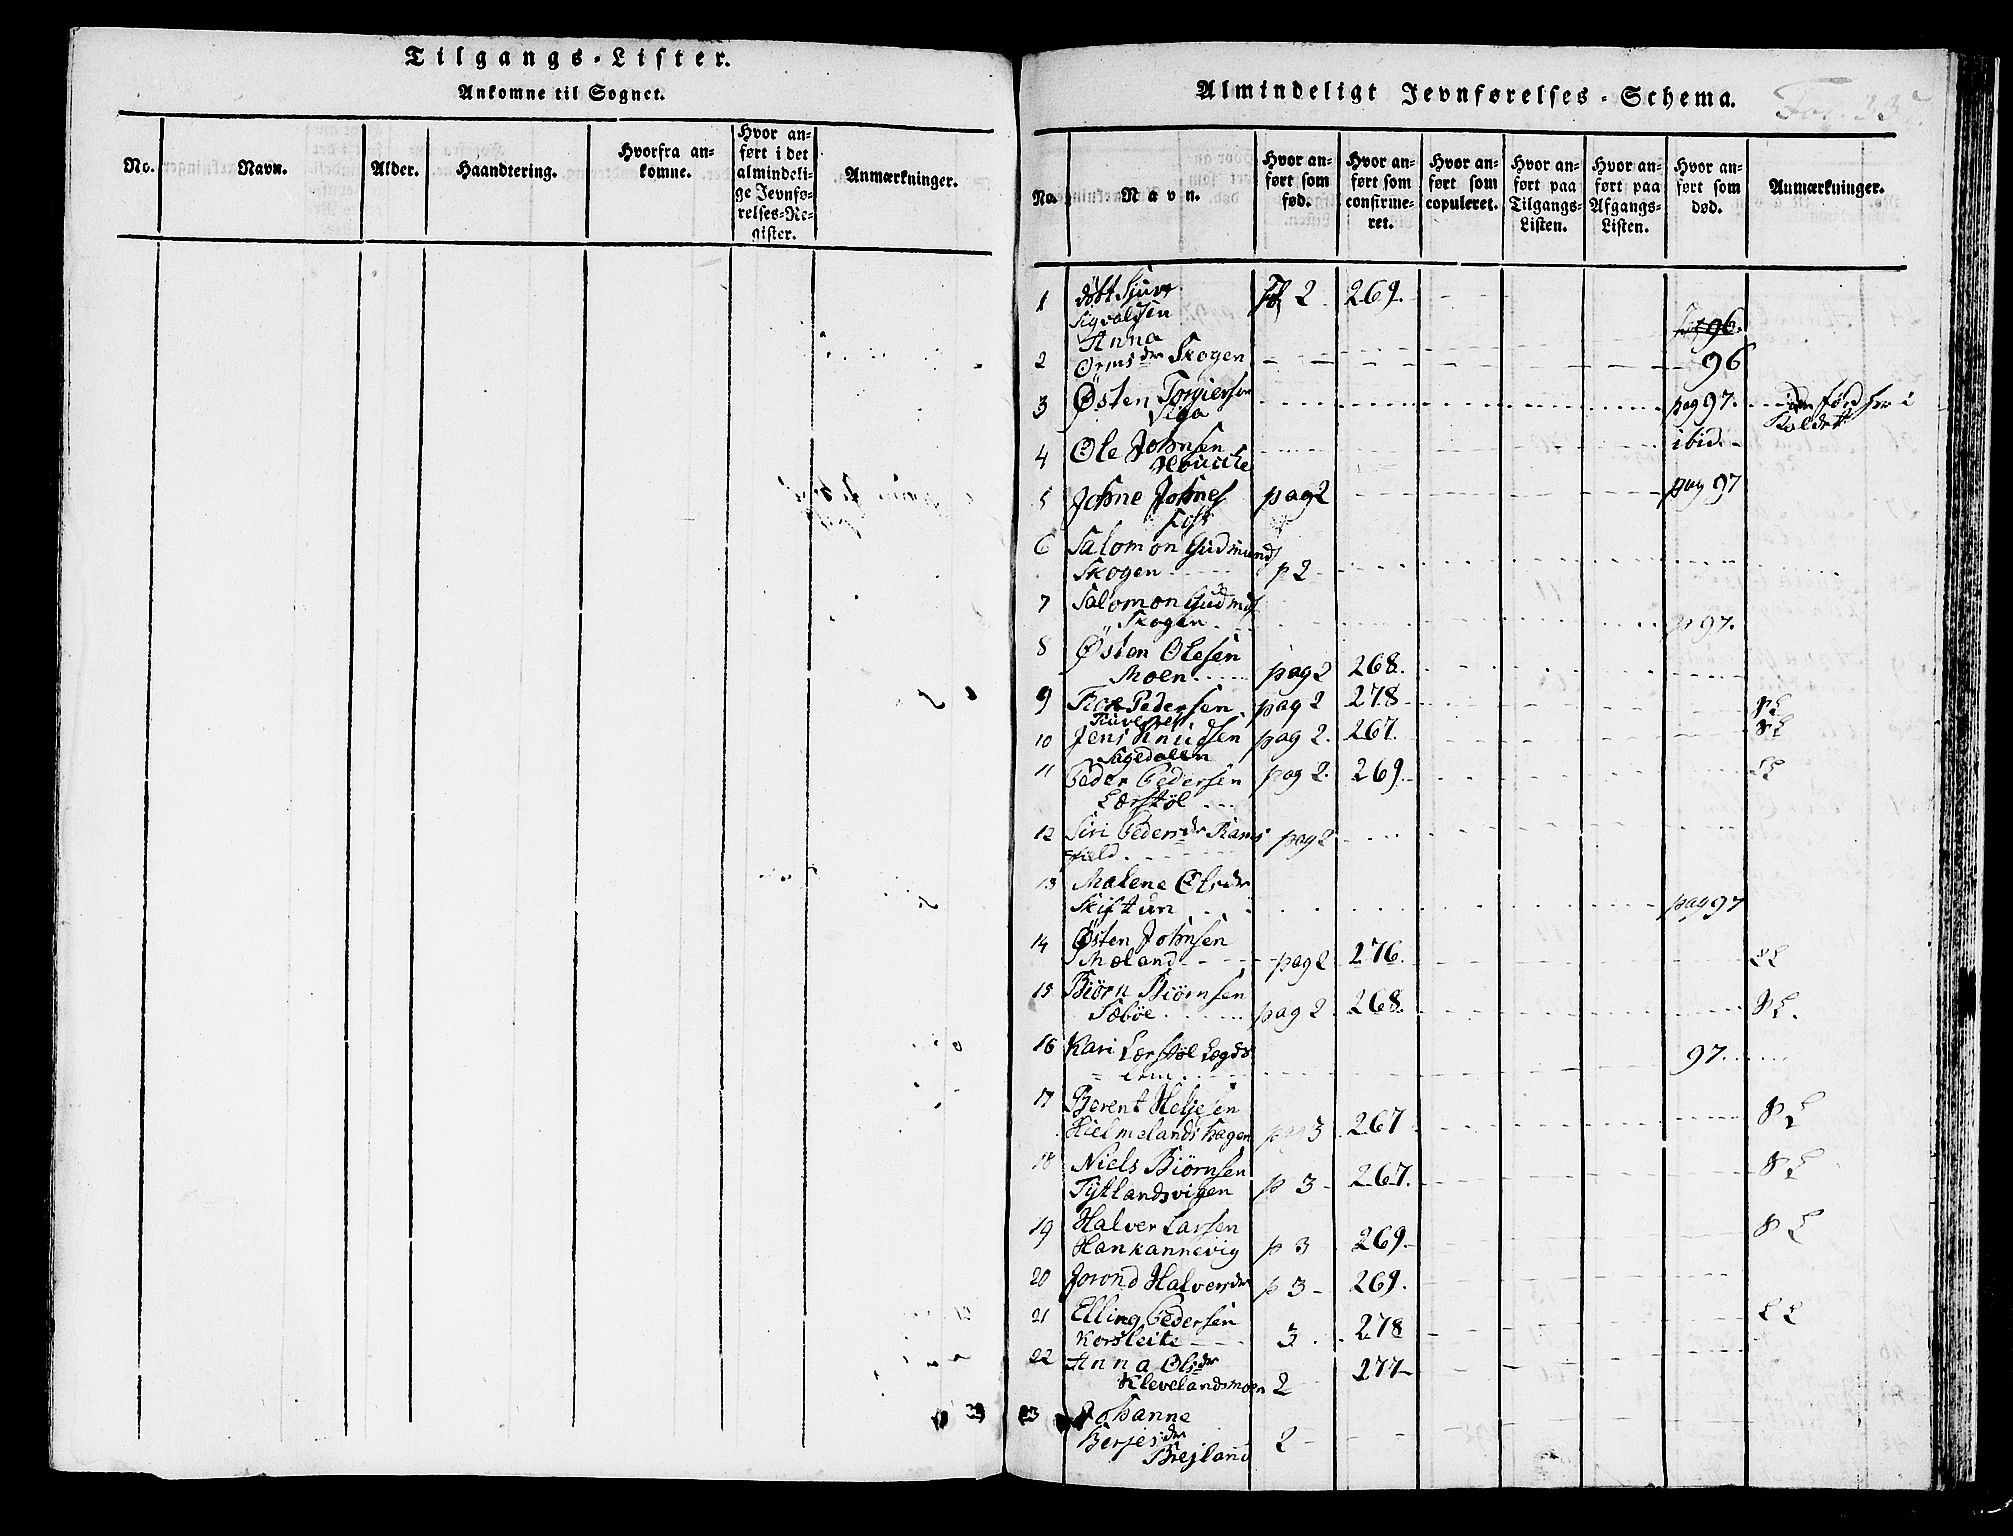 Tilgangs-Lister.
Ankomne til Sognet.
No.
Navn.
Alder.
Haandtering.
Hvorfra an-
komne.
Hvor an-
ført i det
almindeli-
ge Jevnfø-
relses-Re-
gister.
Anmærkninger.
Almindeligt Jevnførelses-Schema.
Fol. 337.
No.
Navn.
Hvor an-
ført som
fød.
Hvor an-
ført som
confirme-
ret.
Hvor an-
ført som
copuleret.
Hvor an-
ført paa
Tilgangs-
Listen.
Hvor an-
ført paa
Afgangs-
Listen.
Hvor an-
ført som
død.
Anmærkninger.
1 Sjur 2 269.
Sigvaldsen
96.
Anna
2 Ormsdr Skogen 96
3 Østen Torgiersen pag 97.
4 Ole Johnsen ibid.
5 Johne Johnes pag 2 pag 97
6 Salomon Gudmunds
Skogen p 2
7 Salomon Gudmds
Skogen p 97.
8 Østen Olesen
Moen pag 2 268.
9 Pedersen pag 2 278
10 Jens Knudsen pag 2. 267.
Sagedalen
11 Peder Pedersen pag 2. 269.
Lærstøl
12 Siri Pedersdr Rams pag 2
field
13 Malene Olsdr
Skiftun pag 97
14 Østen Johnsen
Mæland pag 2 276.
15 Biørn Biørnsen
Sæbøe pag 2 268.
16 Kari Lærstøl Lægds
lem 97.
17 Berent Heljesen
Hielmelandshagen pag 3 267
18 Niels Biørnsen
Tytlandsvigen p 3 267.
19 Halver Larsen
Hankannevig p 3 269.
20 Jorond Halversdr p 3 269.
21 Elling Pedersen
Korsleite 3 278
22 Anna Olsdr 277
Klevelandsmoen 2
23 Johanne
Berjesdr 2
Brejland